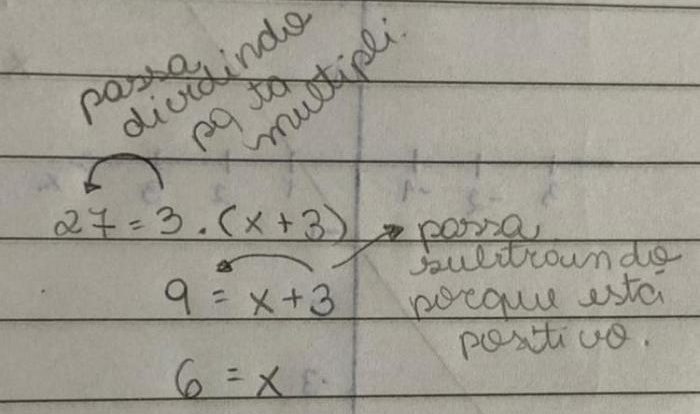 passa
dividindo
pq ta
multipli.
27 = 3 . (x + 3)
9 = x + 3
6 = x
passa
subtraindo
porque está
positivo.